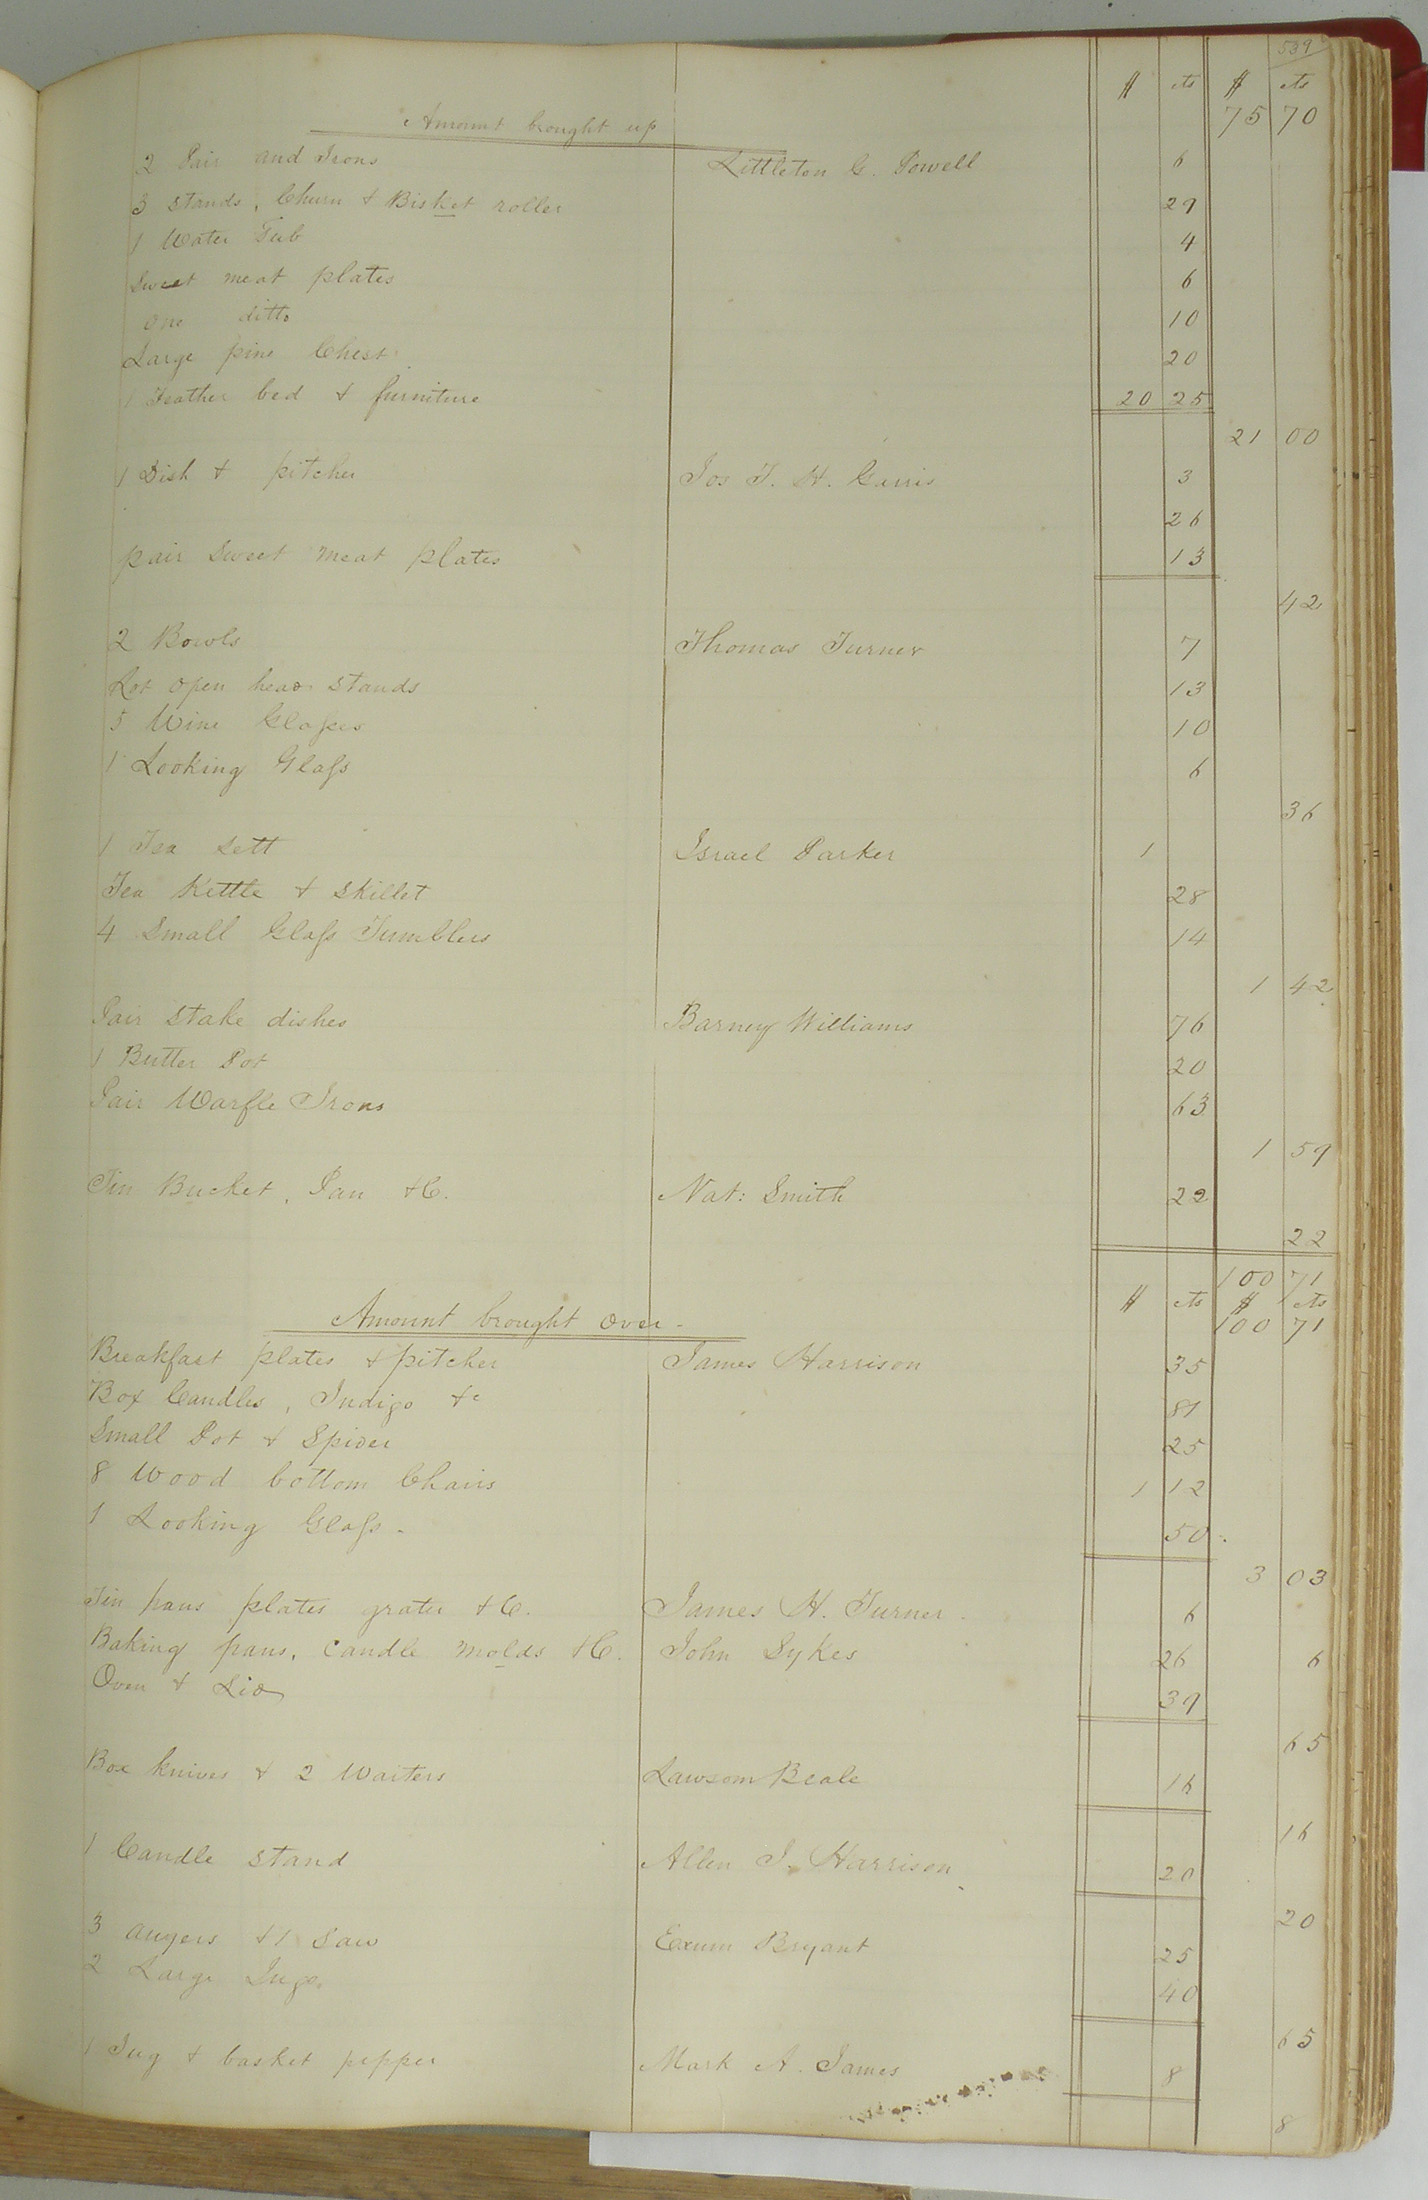 539
$ cts $ cts
Amount brought up 75 70
2 Pair and Irons Littleton G. Powell 6
3 Stands, Churn & Bisket roller 29
1 Water Tub 4
Sweet meat plates 6
One ditto 10
Large pine Chest 20
1 Feather bed & furniture 20 25
21 00
1 Dish & pitcher Jos T. H. Garris 3
26
pair Sweet meat plates 13
42
2 Bowls Thomas Turner 7
Lot open head stands 13
5 Wine Glasses 10
1 Looking Glass 6
36
1 Tea Sett Israel Parker 1
Tea Kettle & Skillet 28
4 Small Glass Tumblers 14
1 42
Pair Stake dishes Barney Williams 76
1 Butter Pot 20
Pair Warfle Irons 63
1 59
Tin Bucket, Pan &C. Nat: Smith 22
22
100 71
$ cts $ cts
Amount brought over - 100 71
Breakfast plates & pitcher James Harrison 35
Box Candles, Indigo &c 81
Small Pot & Spider 25
8 Wood bottom Chairs 1 12
1 Looking Glass - 50
3 03
Tin pans plates grater &C. James H. Turner 6
Baking pans, Candle molds &C. John Sykes 26 6
Oven & Lid 39
65
Box knives & 2 Waiters Lawsom Beale 16
16
1 Candle Stand Allen J. Harrison 20
20
3 augers & 1 Saw Exum Bryant 25
2 Large Jugs. 40
65
1 Jug & basket pepper Mark A. James 8
8